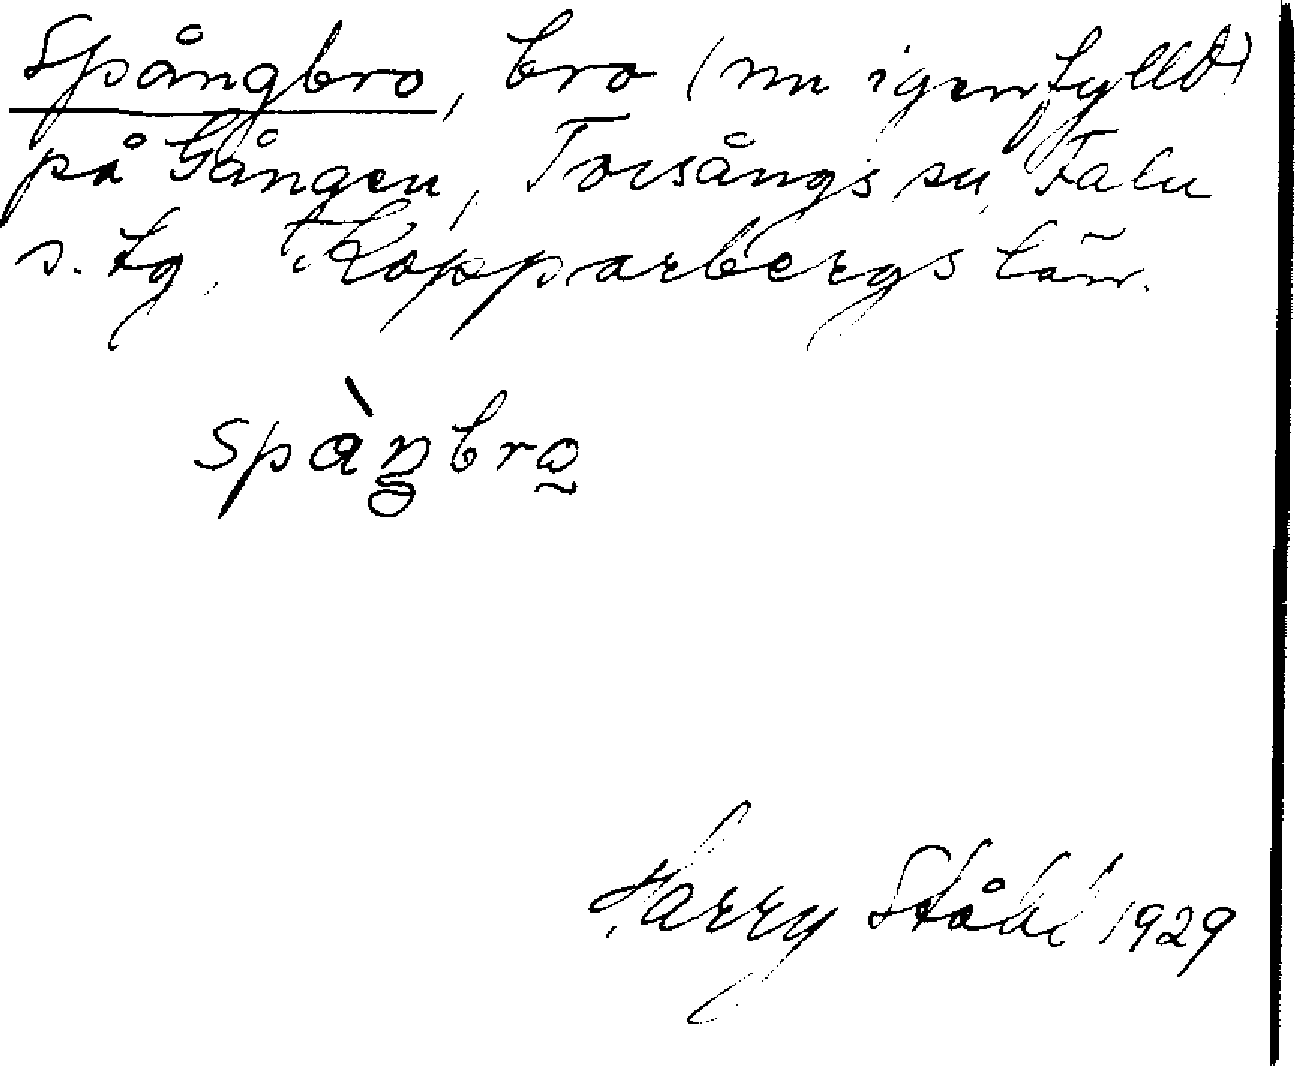 Spångbro, bro (nu igenfylld)
på Gången, Torsångs sn, Falu
s. tg, Kopparbergs län.
spàŋbro̰
Harry Ståhl 1929